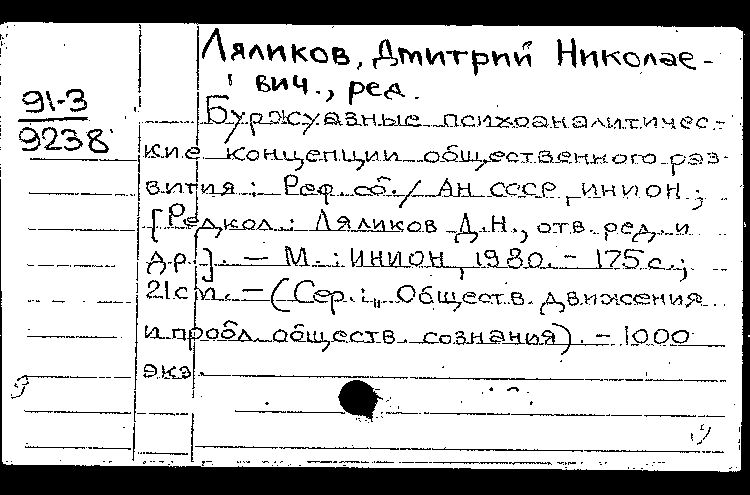 Ляликов, Дмитрий Николае-
вич., ред.
91-3
9238
Буржуазные психоаналитичес-
кие концепции общественного раз-
вития: Реф. сб. / АН СССР, ИНИОН;
[Редкол.: Ляликов Д.Н., отв. ред. и
др.]. — М.: ИНИОН, 1980. - 175 с.;
21 см. — (Сер.: „Обществ. движения
и пробл. обществ. сознания). - 1000
экз.